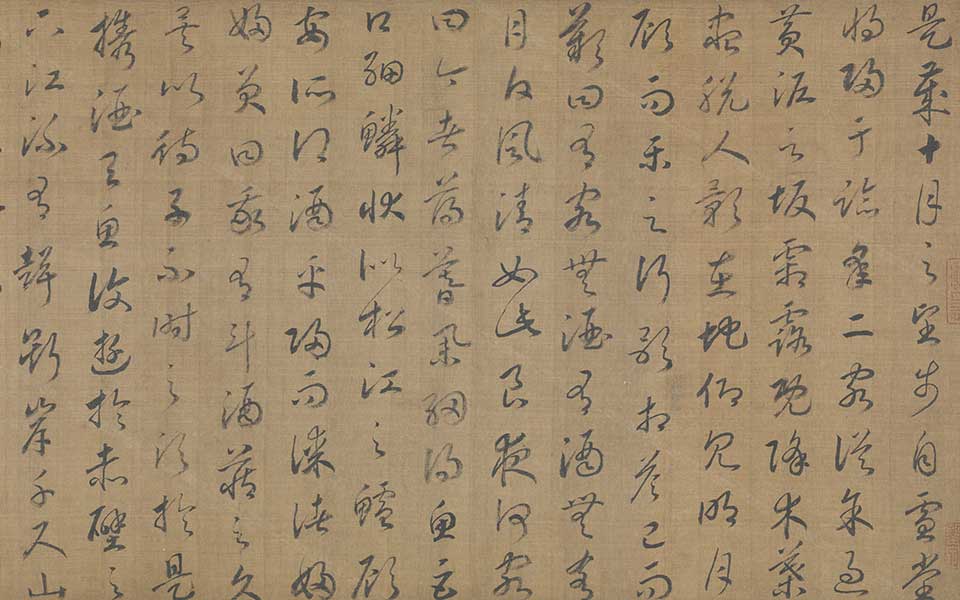 是歲十月之望步自雪堂
將歸于臨皋二客從余過
黃泥之坂霜露既降木葉
盡脫人影在地仰見明月
顧而樂之行歌相答已而
歎曰有客無酒有酒無肴
月白風清如此良夜何客
曰今者薄暮舉網得魚巨
口細鱗狀似松江之鱸顧
安所得酒乎歸而謀諸婦
婦曰我有斗酒藏之久
矣以待子不時之須於是
攜酒與魚復遊於赤壁之
下江流有聲斷岸千尺山